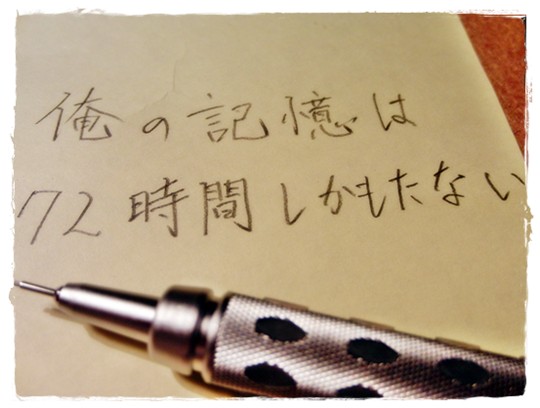 俺の記憶は
72時間しかもたない